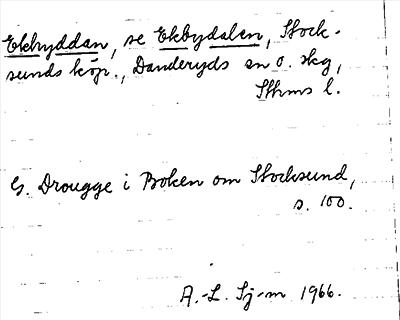 Ekbyddan, se Ekbydalen, Stock-
sunds köp., Danderyds sn o. skg,
Sthms l.
G. Drougge i Boken om Stocksund,
s. 100.
A.-L. Sj-m 1966.